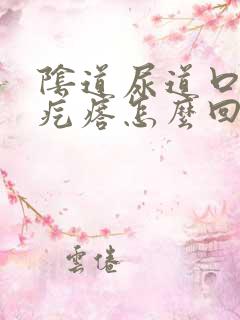 陰道尿道口
疙瘩怎麼回
雲倦